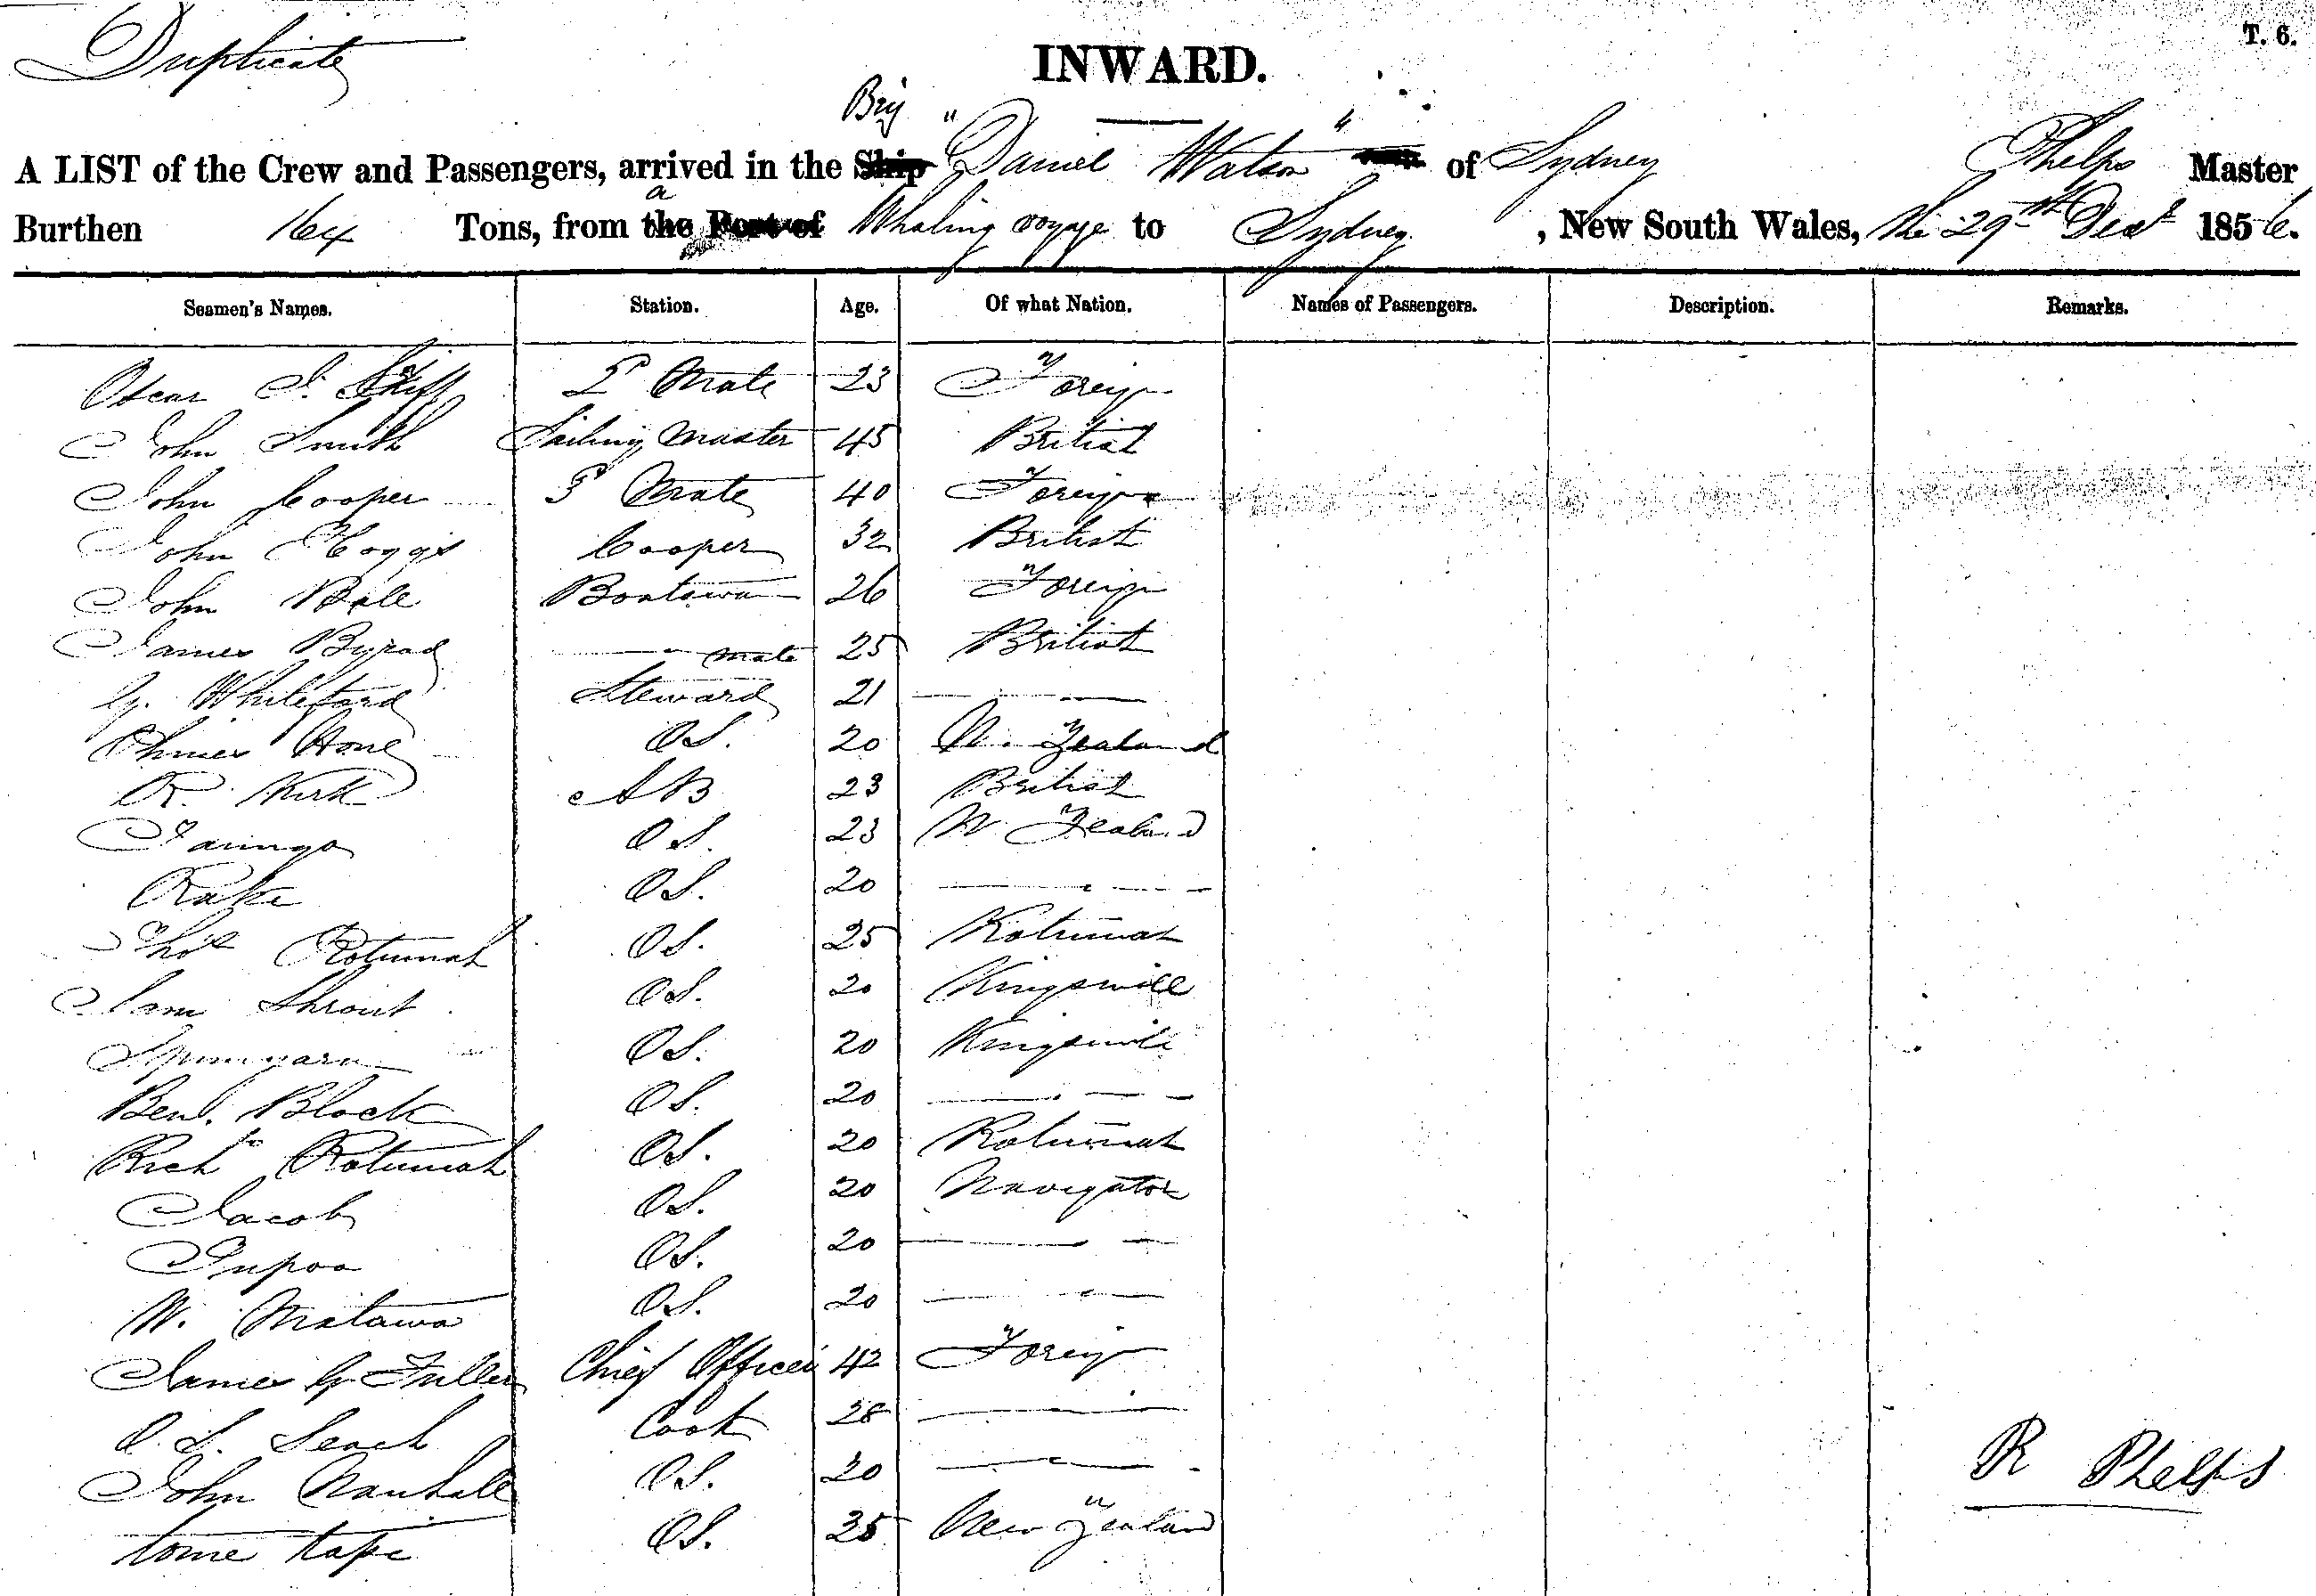 Duplicate
T. 6.
INWARD.
Brig
A LIST of the Crew and Passengers, arrived in the Ship "Daniel Watson" of Sydney Phelps Master
Burthen 164 Tons, from the Port of a Whaling voyage to Sydney, New South Wales, the 29th Decr 1856.
Seamen's Names. Station. Age. Of what Nation. Names of Passengers. Description. Remarks.
Oscar 2d Mate 23 Foreign
John Smith Sailing Master 45 British
John Cooper 3d Mate 40 Foreign
John Hoggs Cooper 32 British
John Ball Boatswn 26 Foreign
James mate 25 British
G. Whiteford Steward 21 — —
Hone OS. 20 N. Zealand
R. Kirk AB 23 British
OS. 23 N Zealand
Rake OS. 20 — " —
Thos Rotumah OS. 25 Rotumah
Sam OS. 20 Kingsmill
Spunyarn OS. 20 Kingsmill
Ben. Black OS. 20 — " —
Richd Rotumah OS. 20 Rotumah
Jacob OS. 20 Navigator
Tupoa OS. 20 — —
W. Matawa OS. 20 — " —
James G Fuller Chief Officer 42 Foreign
Cook 28 — " —
John OS. 20 — " —
tome tapi OS. 35 New Zealand
R Phelps